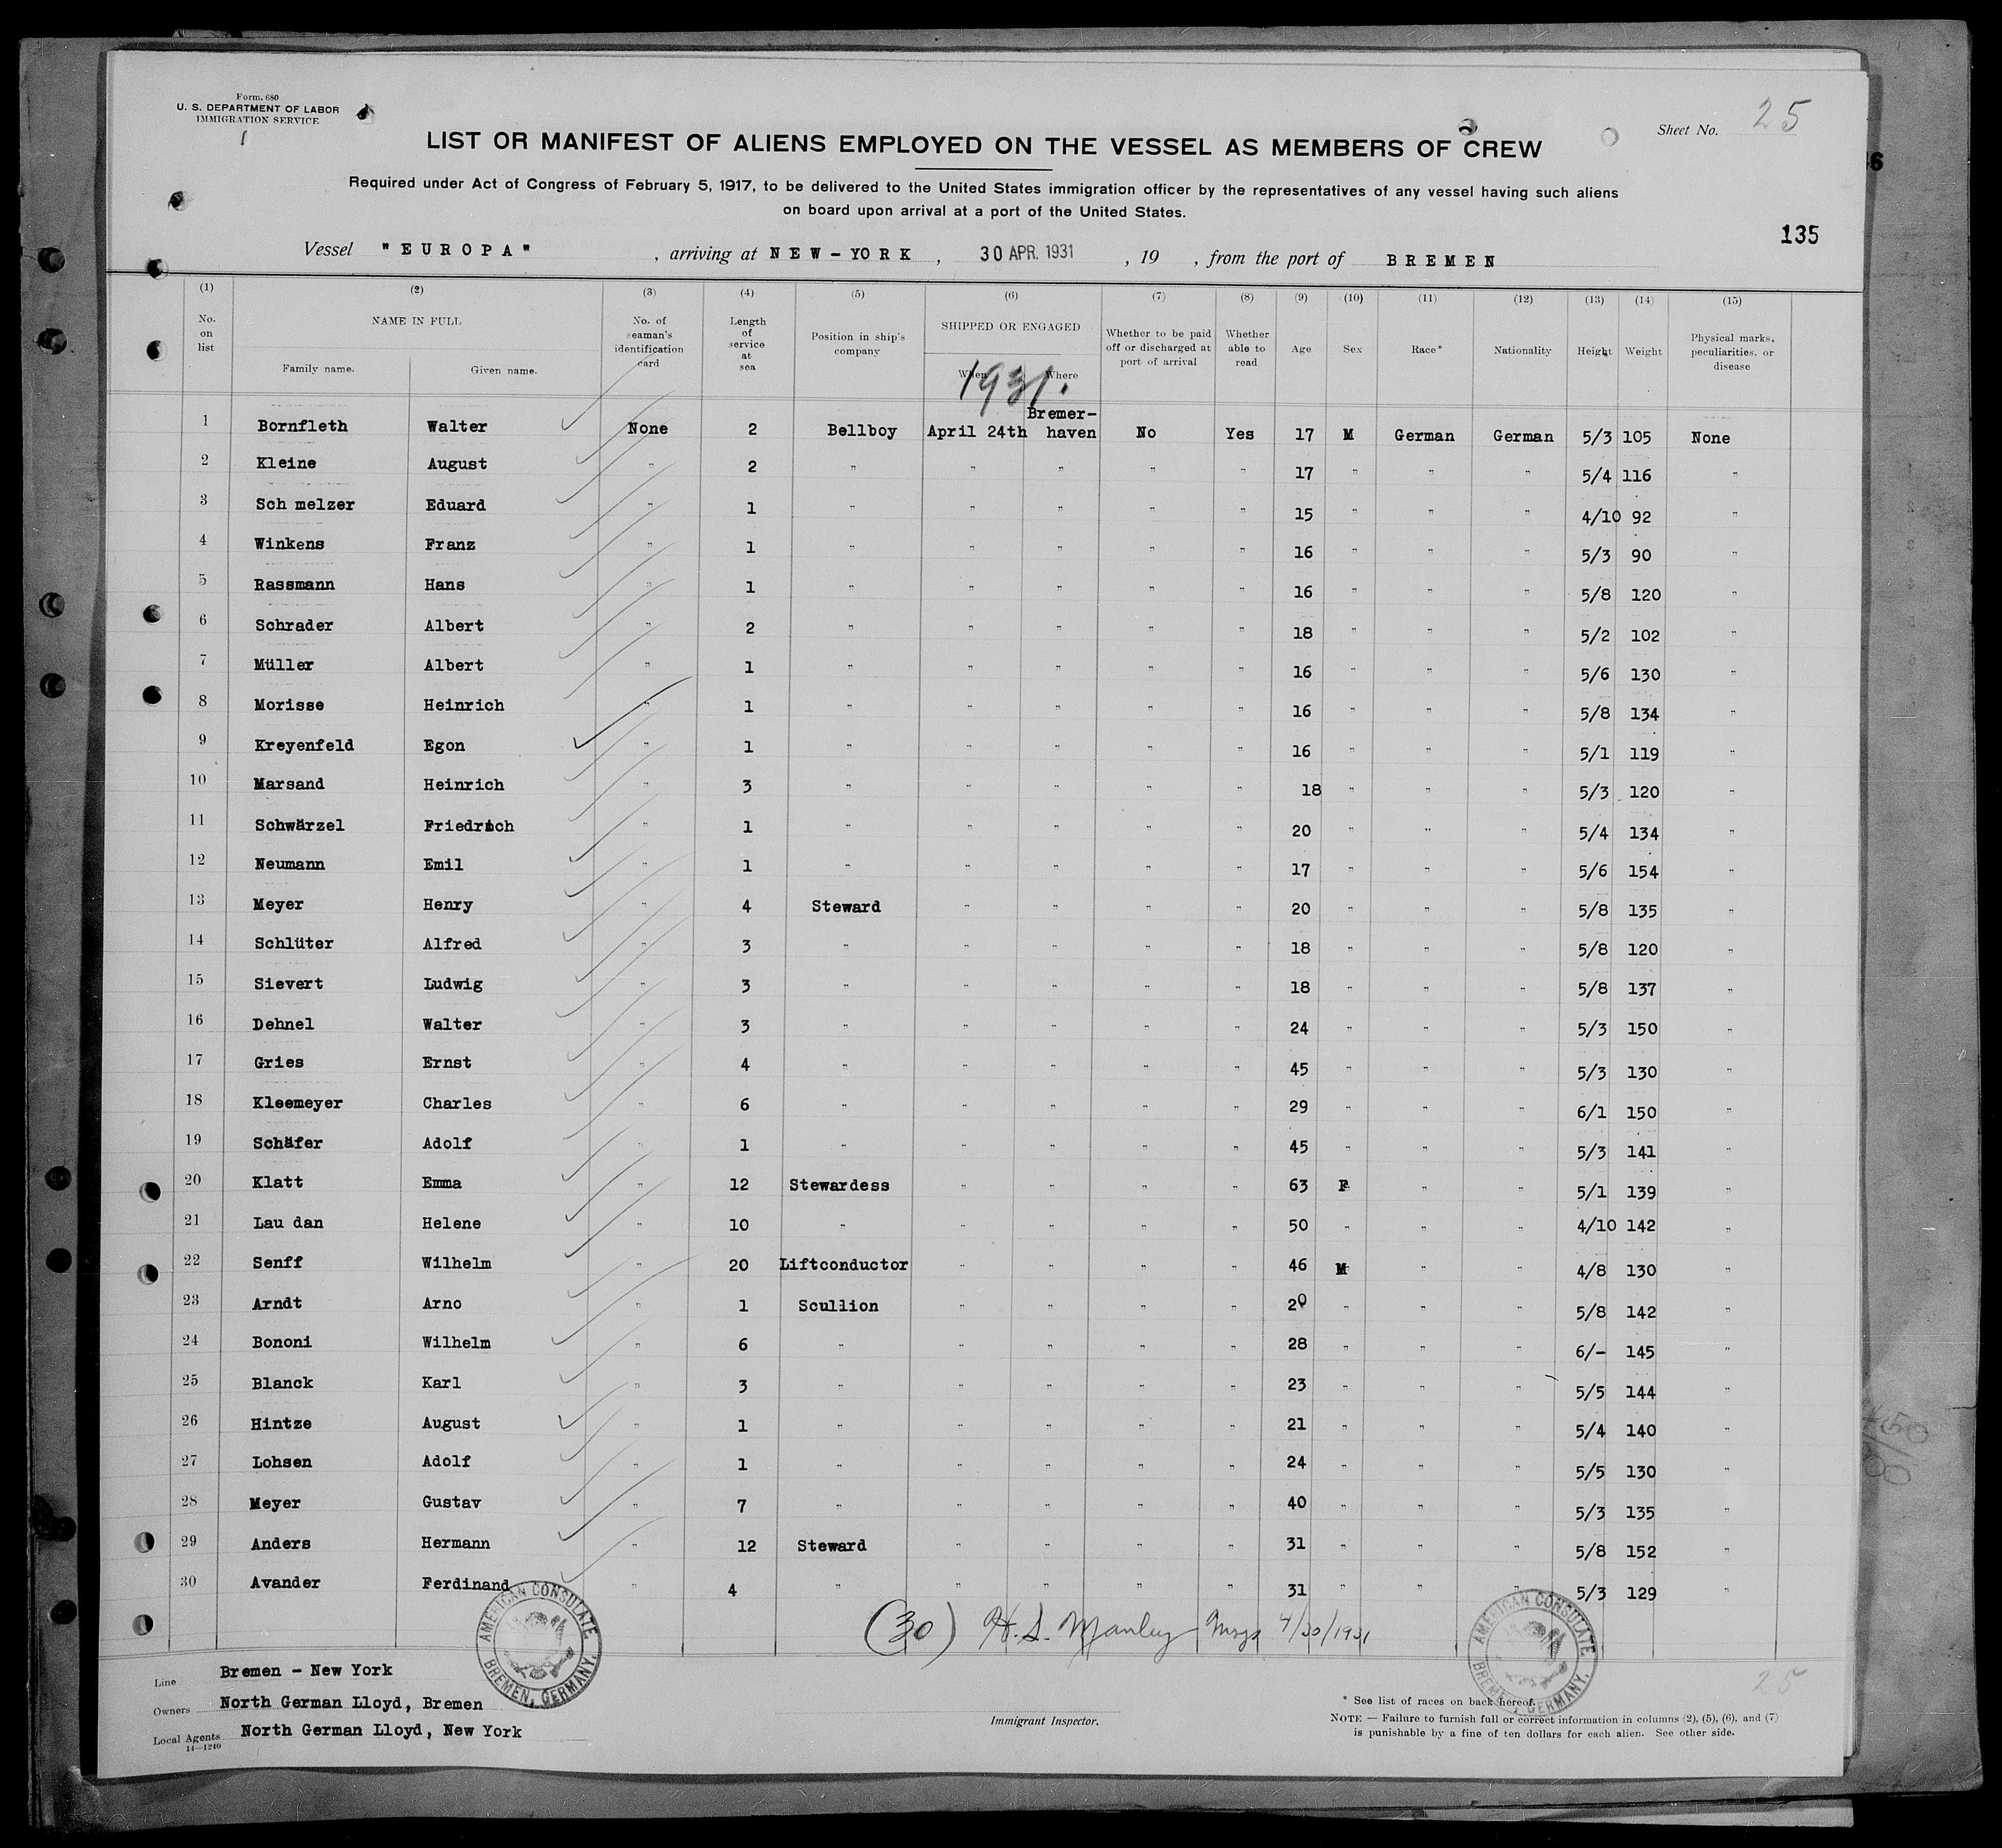 Form. 680
U. S. DEPARTMENT OF LABOR
IMMIGRATION SERVICE
Sheet No. 25
LIST OR MANIFEST OF ALIENS EMPLOYED ON THE VESSEL AS MEMBERS OF CREW
Required under Act of Congress of February 5, 1917, to be delivered to the United States immigration officer by the representatives of any vessel having such aliens
on board upon arrival at a port of the United States.
135
Vessel "EUROPA" , arriving at NEW-YORK , 30 APR. 1931 , 19 , from the port of BREMEN
(1) (2) (3) (4) (5) (6) (7) (8) (9) (10) (11) (12) (13) (14) (15)
No. on list NAME IN FULL Family name. Given name. No. of seaman's identification card Length of service at sea Position in ship's company SHIPPED OR ENGAGED When Where Whether to be paid off or discharged at port of arrival Whether able to read Age Sex Race* Nationality Height Weight Physical marks, peculiarities, or disease
1931.
1 Bornfleth Walter None 2 Bellboy April 24th Bremer-haven No Yes 17 M German German 5/3 105 None
2 Kleine August " 2 " " " " " 17 " " " 5/4 116 "
3 Sch melzer Eduard " 1 " " " " " 15 " " " 4/10 92 "
4 Winkens Franz " 1 " " " " " 16 " " " 5/3 90 "
5 Rassmann Hans " 1 " " " " " 16 " " " 5/8 120 "
6 Schrader Albert " 2 " " " " " 18 " " " 5/2 102 "
7 Müller Albert " 1 " " " " " 16 " " " 5/6 130 "
8 Morisse Heinrich " 1 " " " " " 16 " " " 5/8 134 "
9 Kreyenfeld Egon " 1 " " " " " 16 " " " 5/1 119 "
10 Marsand Heinrich " 3 " " " " " 18 " " " 5/3 120 "
11 Schwärzel Friedrich " 1 " " " " " 20 " " " 5/4 134 "
12 Neumann Emil " 1 " " " " " 17 " " " 5/6 154 "
13 Meyer Henry " 4 Steward " " " " 20 " " " 5/8 135 "
14 Schlüter Alfred " 3 " " " " " 18 " " " 5/8 120 "
15 Sievert Ludwig " 3 " " " " " 18 " " " 5/8 137 "
16 Dehnel Walter " 3 " " " " " 24 " " " 5/3 150 "
17 Gries Ernst " 4 " " " " " 45 " " " 5/3 130 "
18 Kleemeyer Charles " 6 " " " " " 29 " " " 6/1 150 "
19 Schäfer Adolf " 1 " " " " " 45 " " " 5/3 141 "
20 Klatt Emma " 12 Stewardess " " " " 63 F " " 5/1 139 "
21 Lau dan Helene " 10 " " " " " 50 " " " 4/10 142 "
22 Senff Wilhelm " 20 Liftconductor " " " " 46 M " " 4/8 130 "
23 Arndt Arno " 1 Scullion " " " " 20 " " " 5/8 142 "
24 Bononi Wilhelm " 6 " " " " " 28 " " " 6/- 145 "
25 Blanck Karl " 3 " " " " " 23 " " " 5/5 144 "
26 Hintze August " 1 " " " " " 21 " " " 5/4 140 "
27 Lohsen Adolf " 1 " " " " " 24 " " " 5/5 130 "
28 Meyer Gustav " 7 " " " " " 40 " " " 5/3 135 "
29 Anders Hermann " 12 Steward " " " " 31 " " " 5/8 152 "
30 Avander Ferdinand " 4 " " " " " 31 " " " 5/3 129 "
AMERICAN CONSULATE. BREMEN, GERMANY.
(30) H. S. Manley 4/30/1931
AMERICAN CONSULATE. BREMEN, GERMANY.
Line Bremen - New York
Owners North German Lloyd, Bremen
Local Agents North German Lloyd, New York
14—1240
Immigrant Inspector.
25
* See list of races on back hereof.
NOTE — Failure to furnish full or correct information in columns (2), (5), (6), and (7)
is punishable by a fine of ten dollars for each alien. See other side.